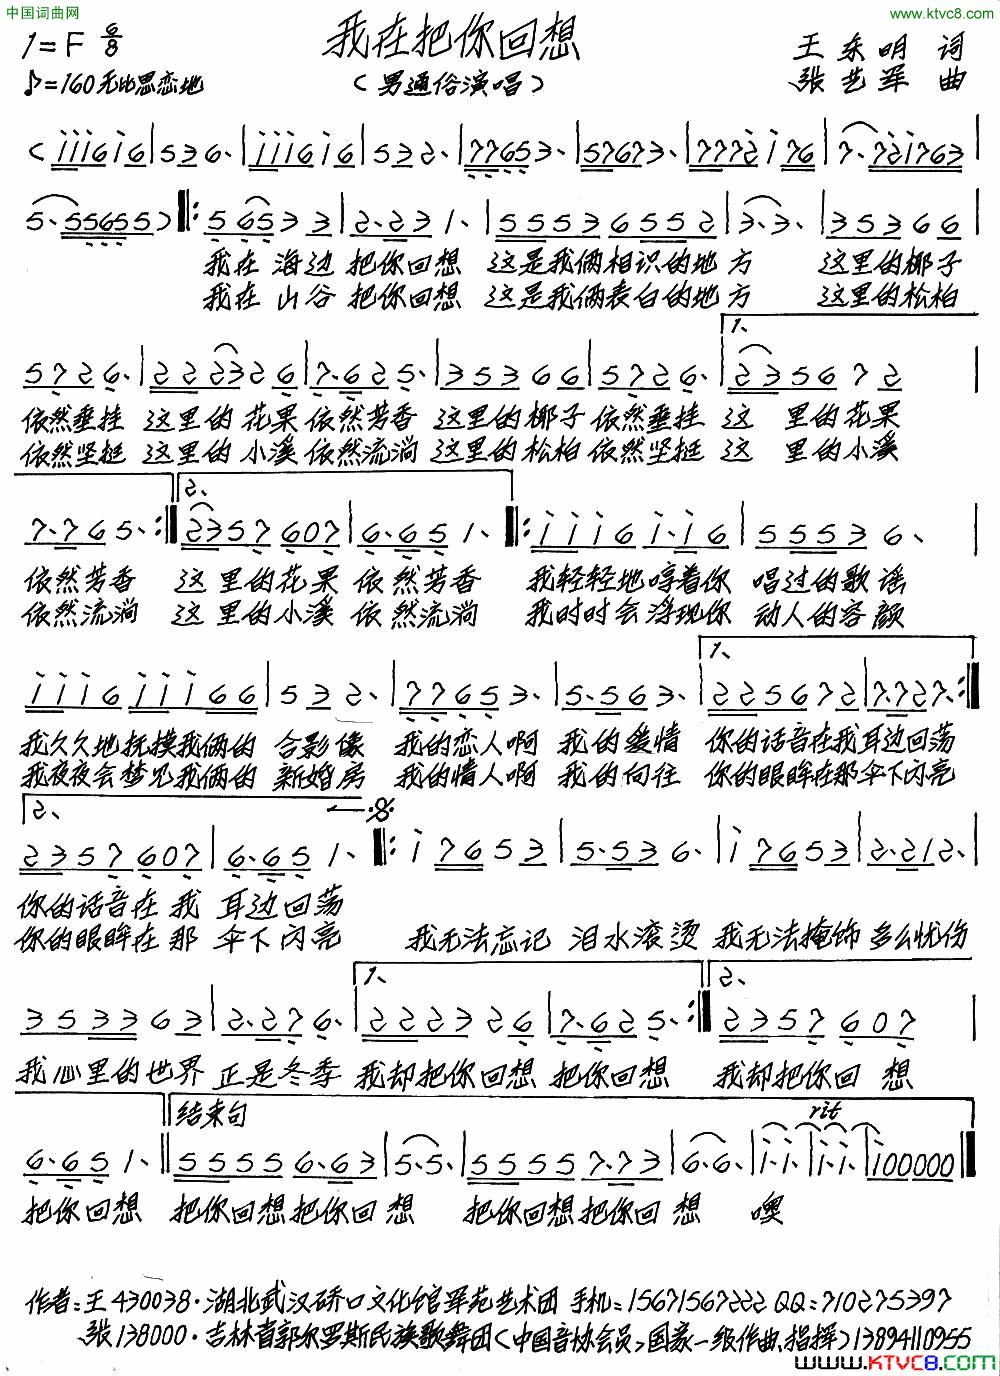 中国词曲网
www.ktvc8.com
1=F 6/8
我在把你回想
王东明 词
♪=160 无比思恋地
（男通俗演唱）
张艺军 曲
(iii6i6|536.|iii6i6|532.|77653.|57673.|7772i76|7.72i763|
5.55655)‖:56533|2.231.|555365552|3.3.|35366|
我在 海边 把你回想 这是我俩相识的地方 这里的椰子
我在 山谷 把你回想 这是我俩表白的地方 这里的松柏
1.
5726.|222326|7.625.|35366|5726.|235672
依然垂挂 这里的花果依然芳香 这里的椰子依然垂挂 这 里的花果
依然坚挺 这里的小溪依然流淌 这里的松柏依然坚挺 这 里的小溪
2.
7.765.:‖2357607|6.651.‖:iii6i.i6|55536.|
依然芳香 这里的花果 依然芳香 我轻轻地哼着你 唱过的歌谣
依然流淌 这里的小溪 依然流淌 我时时会浮现你 动人的容颜
1.
iii6iii66|532.|77653.|5.563.|225672|7.727.:‖
我久久地抚摸我俩的 合影像 我的恋人啊 我的爱情 你的话音在我耳边回荡
我夜夜会梦见我俩的 新婚房 我的情人啊 我的向往 你的眼眸在那伞下闪亮
2.
2357607|6.651.‖:i7653|5.536.|i7653|2.212.|
你的话音在 我 耳边回荡
你的眼眸在 那 伞下闪亮 我无法忘记 泪水滚烫 我无法掩饰 多么忧伤
1. 2.
353363|2.276.|222326|7.625.:‖2357607|
我心里的世界 正是冬季 我却把你回想 把你回想 我却把你回 想
结束句
rit
6.651.‖55556.63|5.5.|55557.73|6.6.|i.i.|i.i.|i00000‖
把你回想 把你回想把你回 想 把你回想把你回 想 噢
作者:王430038·湖北武汉硚口文化馆军苑艺术团 手机:15671567222 QQ:710275397
张138000·吉林省郭尔罗斯民族歌舞团<中国音协会员>国家一级作曲、指挥)13894110955
www.KTVC8.com